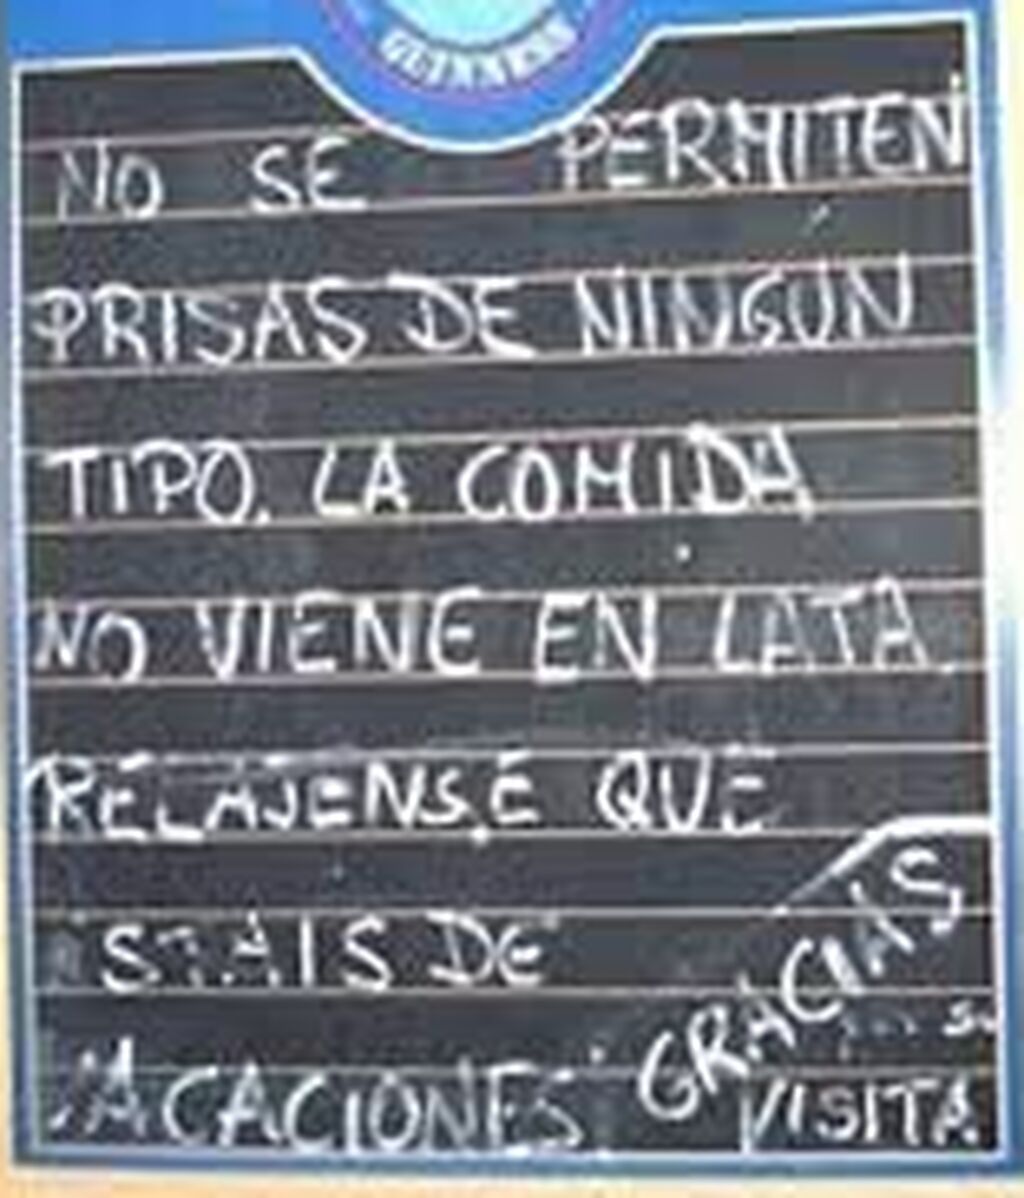 GUINNESS
NO SE PERMITEN
PRISAS DE NINGÚN
TIPO. LA COMIDA
NO VIENE EN LATA.
RELAJENSE QUE
ESTAIS DE
VACACIONES.
GRACIAS
SU
VISITA